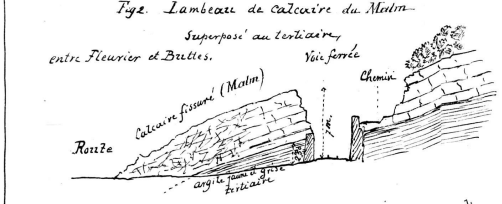 Fig 2. Lambeau de calcaire du Malm
Superposé au tertiaire,
entre Fleurier et Buttes.
Voie ferrée
Chemin
Calcaire fissuré (Malm)
7 m.
Route
argile jaune & grise
tertiaire